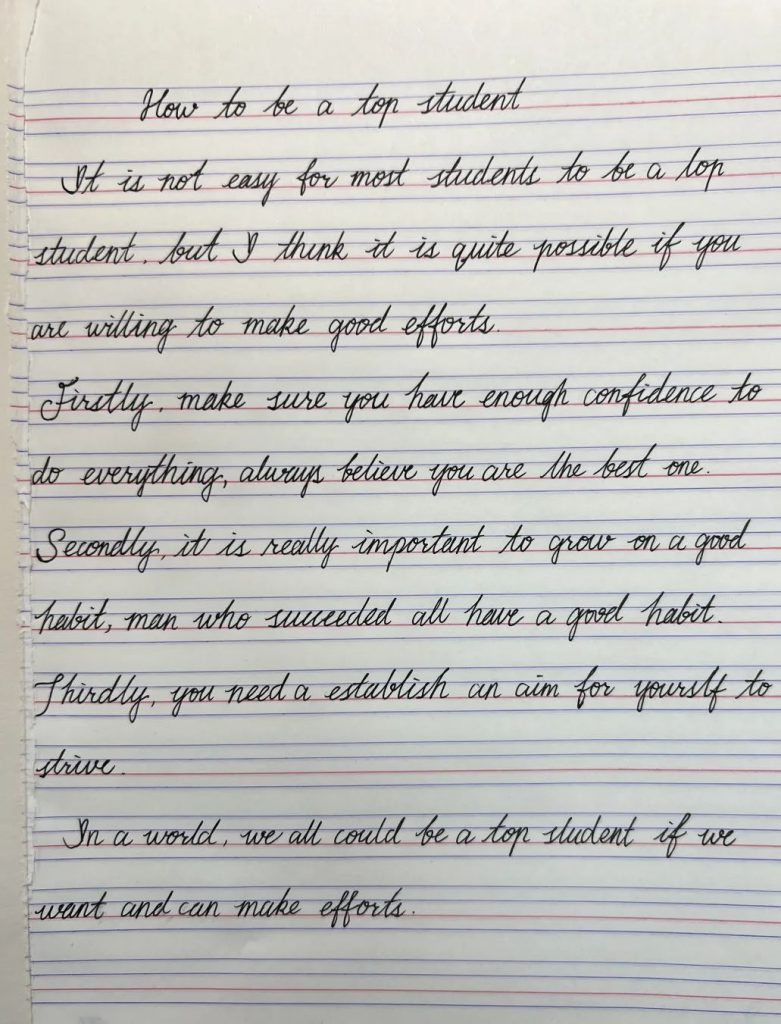 How to be a top student
It is not easy for most students to be a top
student. but I think it is quite possible if you
are willing to make good efforts.
Firstly, make sure you have enough confidence to
do everything, always believe you are the best one.
Secondly, it is really important to grow on a good
habit, man who succeeded all have a good habit.
Thirdly, you need a establish an aim for yourslf to
strive.
In a world, we all could be a top student if we
want and can make efforts.